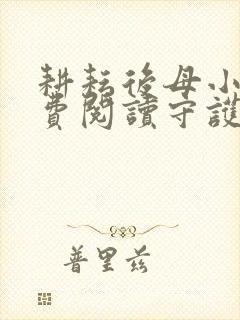 耕耘後母小
費閱讀守護
普里兹